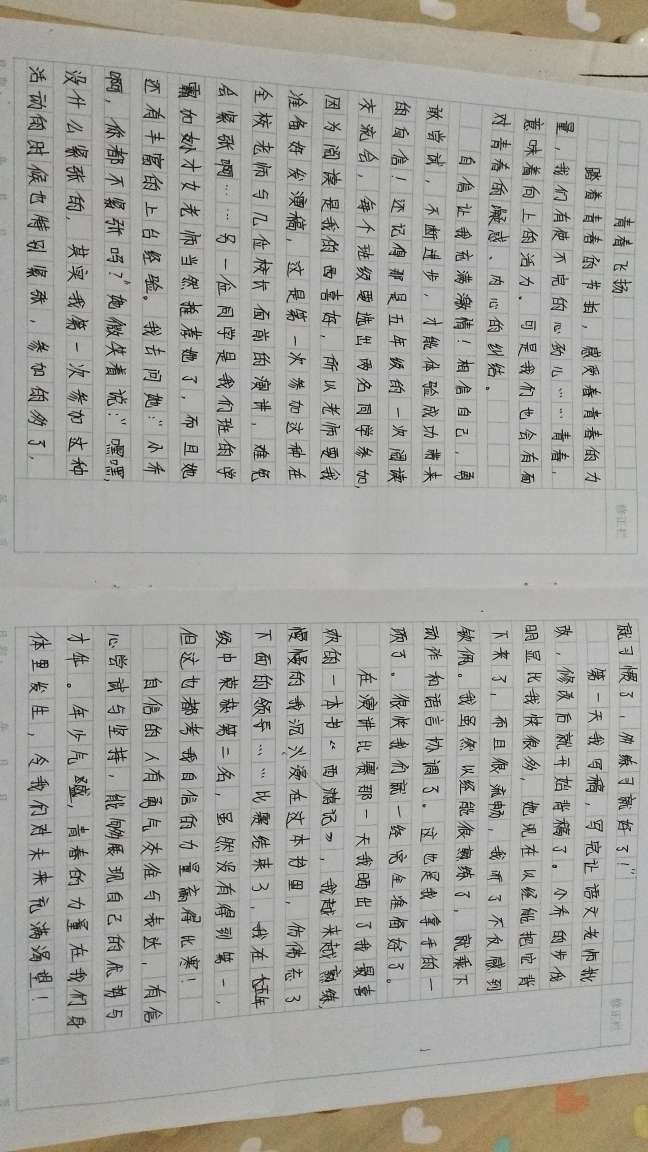 青春飞扬
踏着青春的节拍，感受着青春的力
量，我们有使不完的心劲儿……青春，
意味着向上的活力。可是我们也会有面
对青春的疑惑、内心的纠结。
自信让我充满激情！相信自己，勇
敢尝试，不断进步，才能体验成功带来
的自信！还记得那是五年级的一次阅读
交流会，每个班级要选出两名同学参加，
因为阅读是我的喜好，所以老师要我
准备好发演稿，这是第一次参加这种在
全校老师与几位校长面前的演讲，难免
会紧张啊……另一位同学是我们班的学
霸加妙才女老师当然推荐她了，而且她
还有丰富的上台经验。我去问她：“小乔
啊，你都不紧张吗？”她微笑着说：“嘿嘿，
没什么紧张的，其实我第一次参加这种
活动的时候也特别紧张，参加的多了，
修正栏
就习惯了，多练习就好了！”
第一天我写稿，写完让语文老师批
改，修改后就开始背稿了。小乔的步伐
明显比我快很多，她现在以经能把它背
下来了，而且很流畅，我听了不免感到
钦佩。我虽然以经能很熟练了，就乘下
动作和语言协调了。这也是我拿手的一
项了。很快我们就一经完全准备好了。
在演讲比赛那一天我晒出了我最喜
欢的一本书《西游记》，我越来越熟练，
慢慢的我沉浸在这本书里，仿佛忘了
下面的领导……比赛结束了，我在五年
级中荣获第二名，虽然没有得到第一，
但这也都考我自信的力量赢得比赛！
自信的人有勇气交往与表达，有信
心尝试与坚持，能够展现自己的优势与
才华。年少气盛，青春的力量在我们身
体里发生，令我们对未来充满渴望！
修正栏